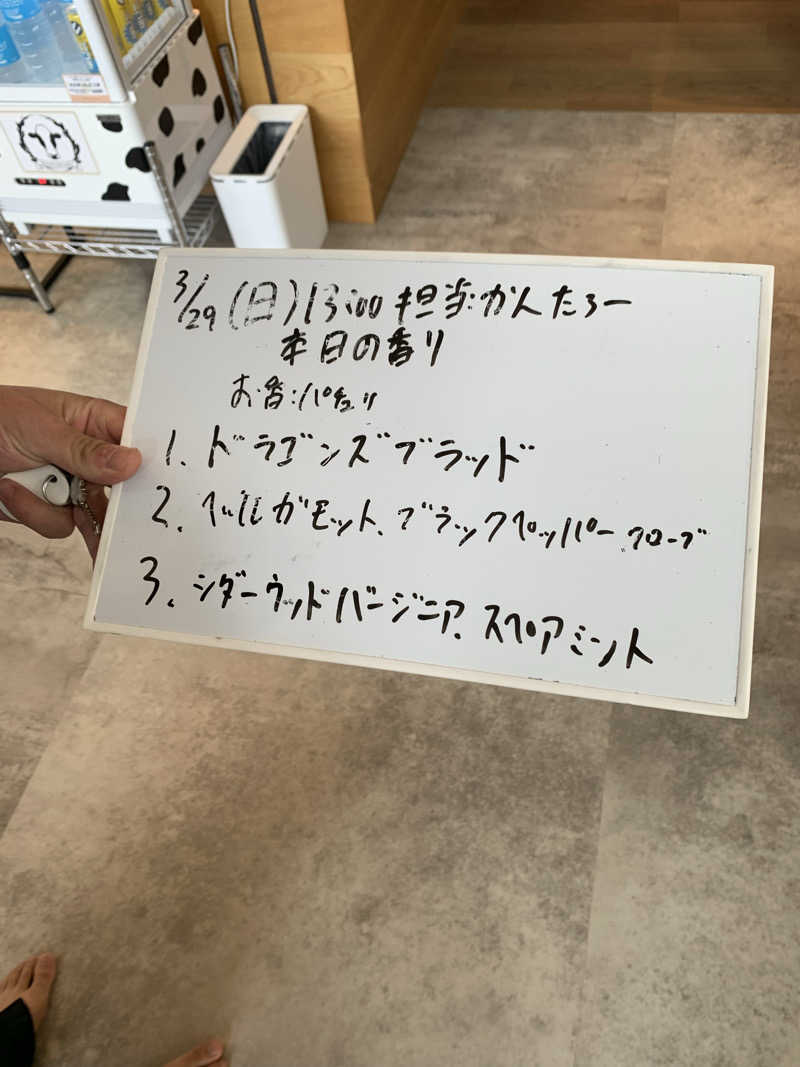 3/29(日)13:00 担当:かんたろー
本日の香り
お香:パチュリ
1. ドラゴンズブラッド
2. ベルガモット、ブラックペッパー、クローブ
3. シダーウッドバージニア、スペアミント